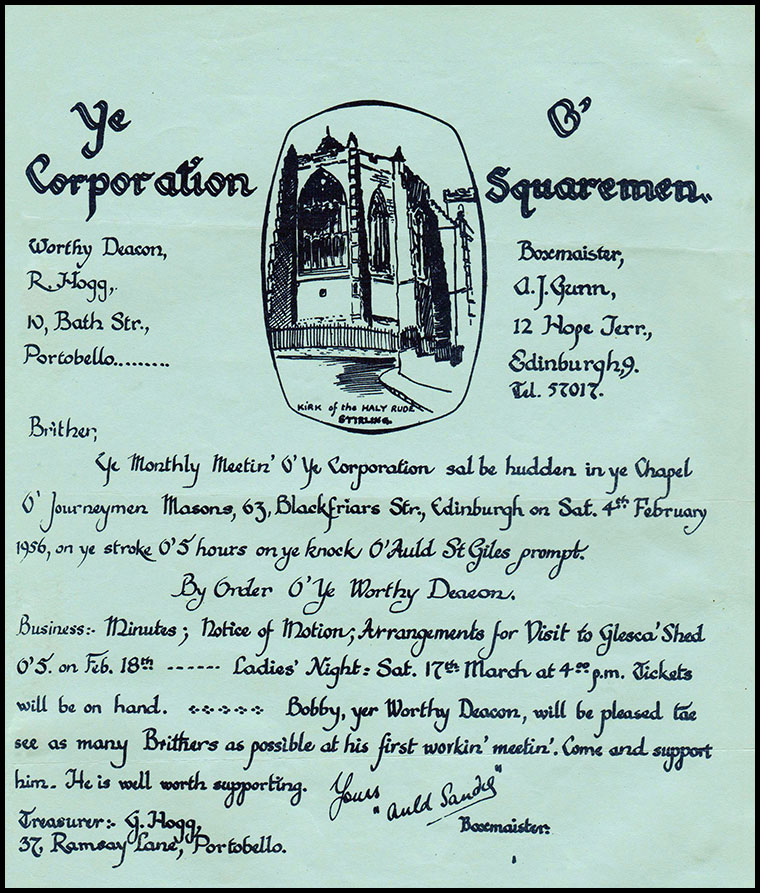 Ye O'
Corporation Squaremen..
Worthy Deacon,
R. Hogg,
10, Bath Str.,
Portobello.........
Boxmaister,
A.J. Gunn,
12 Hope Terr.,
Edinburgh,9.
Tel. 57017.
KIRK of the HALY RUDE
STIRLING.
Brither,
Ye Monthly Meetin' O' Ye Corporation sal be hudden in ye Chapel
O' Journeymen Masons, 63, Blackfriars Str., Edinburgh on Sat. 4th February
1956, on ye stroke O'5 hours on ye knock O'Auld St Giles prompt.
By Order O' Ye Worthy Deacon.
Business:- Minutes; Notice of Motion; Arrangements for Visit to Glesca' Shed
O'5. on Feb. 18th ------ Ladies' Night: Sat. 17th March at 4.00 p.m. Tickets
will be on hand. Bobby, yer Worthy Deacon, will be pleased tae
see as many Brithers as possible at his first workin' meetin'. Come and support
him. He is well worth supporting. Yours
"Auld Sandy"
Boxmaister.
Treasurer:- G. Hogg,
37, Ramsay Lane, Portobello.